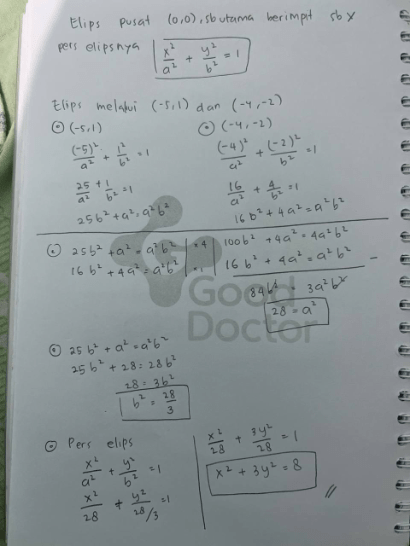 Elips pusat (0,0), sb utama berimpit sb x
pers elipsnya x²/a² + y²/b² = 1
Elips melalui (-5,1) dan (-4,-2)
(-5,1)
(-5)²/a² + 1²/b² = 1
25/a² + 1/b² = 1
25b² + a² = a²b²
(-4,-2)
(-4)²/a² + (-2)²/b² = 1
16/a² + 4/b² = 1
16b² + 4a² = a²b²
25b² + a² = a²b² | ×4 | 100b² + 4a² = 4a²b²
16b² + 4a² = a²b² | ×1 | 16b² + 4a² = a²b² -
84b² = 3a²b²
28 = a²
Good
Doctor
25b² + a² = a²b²
25b² + 28 = 28b²
28 = 3b²
b² = 28/3
Pers elips
x²/a² + y²/b² = 1
x²/28 + y²/28/3 = 1
x²/28 + 3y²/28 = 1
x² + 3y² = 8